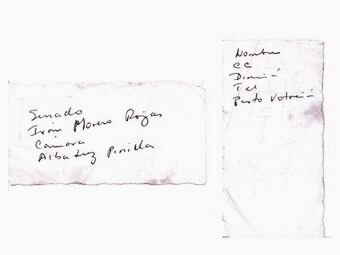 Senado
Iván Moreno Rojas
Cámara
Alba Luz Pinilla
Nombre
CC
Direcció
Tel
Puesto Votació